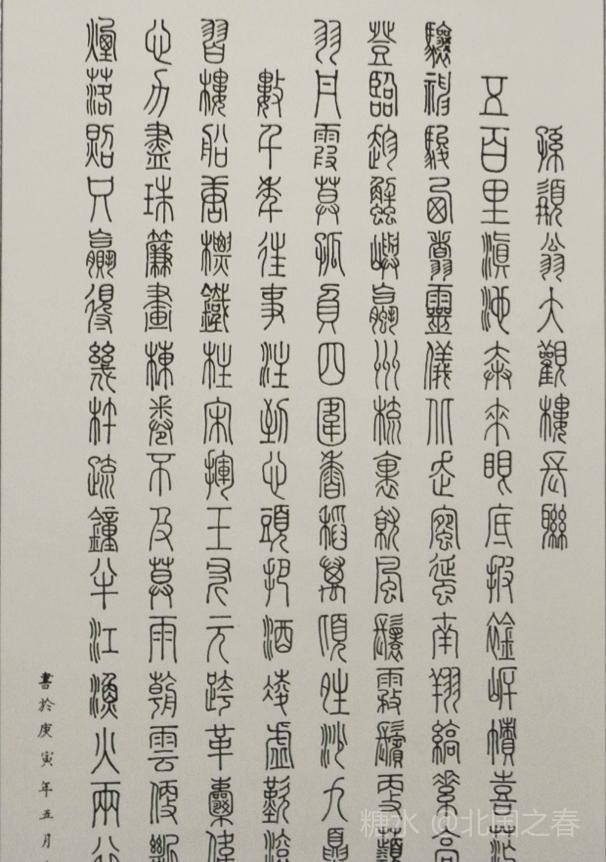 孫髯翁大觀樓長聯
五百里滇池奔來眼底披襟岸幘喜茫
驤神駿西翥靈儀北走蜿蜒南翔縞素高
登臨趁蟹嶼蠃州梳裹就風鬟霧鬢更蘋
羽丹霞莫孤負四圍香稻萬頃晴沙九夏
數千年往事注到心頭把酒凌虛歎滾
習樓船唐標鐵柱宋揮玉斧元跨革囊偉
心力盡珠簾畫棟卷不及莫雨朝雲便斷
煙落照只贏得幾杵疏鐘半江漁火兩
書於庚寅年五月
糖水 @北国之春